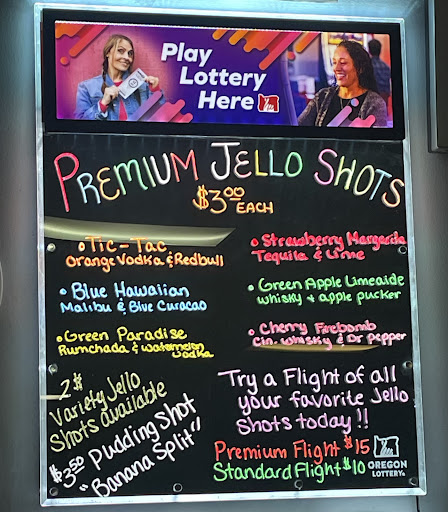 Play
Lottery
Here
PREMIUM JELLO SHOTS
$3.00 EACH
• Tic-Tac
Orange Vodka & Redbull
• Blue Hawaiian
Malibu & Blue Curacao
• Green Paradise
Rumchada & watermelon
vodka
• Strawberry Margarita
Tequila & Lime
• Green Apple Limeaide
whisky & apple pucker
• Cherry Firebomb
Cin. whisky & Dr pepper
2$
Variety Jello
Shots available
$3.50 Pudding Shot
"Banana Split"
Try a Flight of all
your favorite Jello
Shots today!!
Premium Flight $15
Standard Flight $10
OREGON
LOTTERY